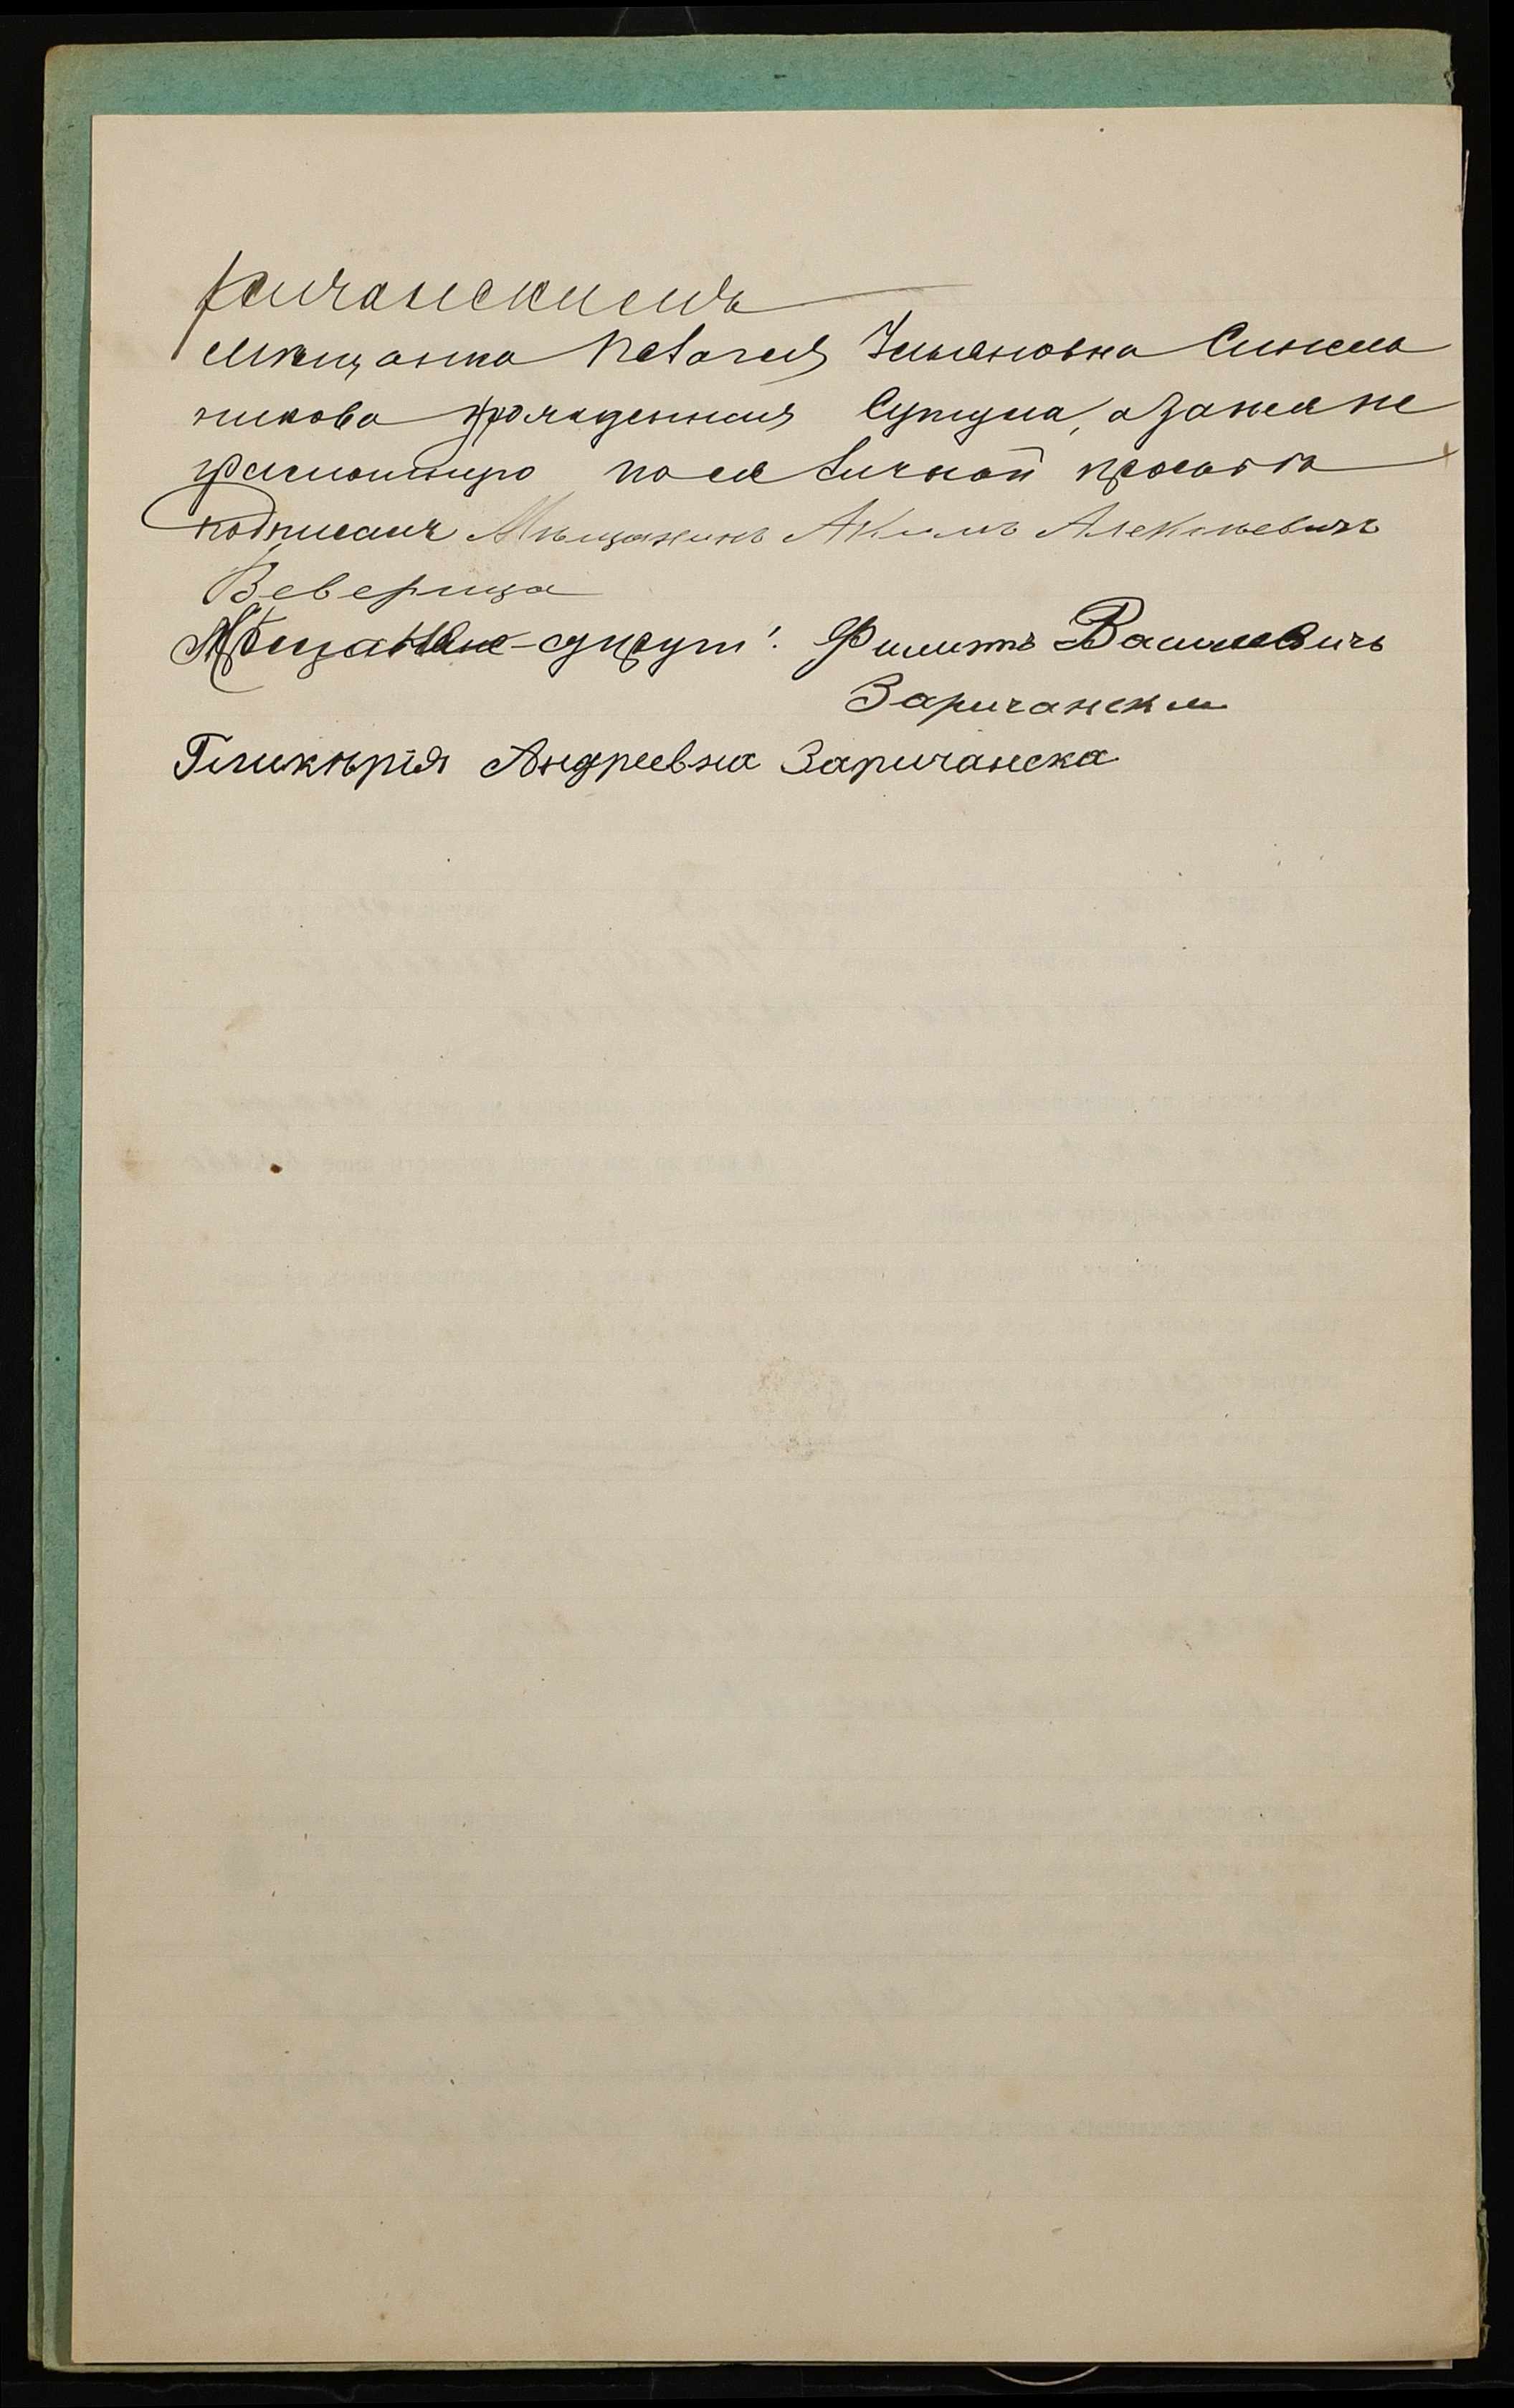 ричанскимъ
Мѣщанка Наталія Ульяновна Синельникова
урожденная Сутула, а за нея не
грамотную по ея личной просьбѣ
подписалъ Мѣщанинъ Акимъ Алексѣевичъ
Веверица
Мѣщане-супруги: Филиппъ Василевичъ
Заричански
Гликѣрія Андреевна Заричанска